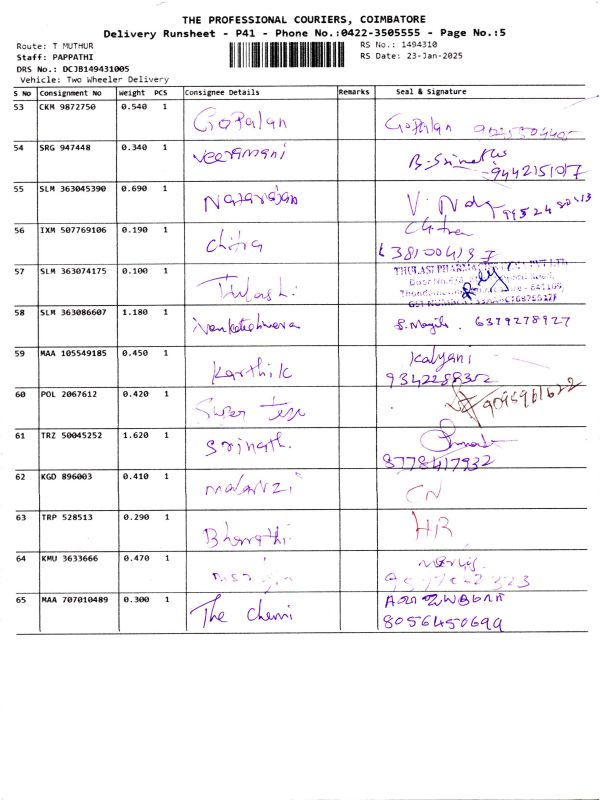 THE PROFESSIONAL COURIERS, COIMBATORE
Delivery Runsheet - P41 - Phone No.:0422-3505555 - Page No.:5
Route: T MUTHUR RS No.: 1494310
Staff: PAPPATHI RS Date: 23-Jan-2025
DRS No.: DCJB149431005
Vehicle: Two Wheeler Delivery
S No Consignment No Weight PCS Consignee Details Remarks Seal & Signature
53 CKM 9872750 0.540 1 Gopalan Gopalan
54 SRG 947448 0.340 1 Veeramani
9442151017
55 SLM 363045390 0.690 1 Natarajan
56 IXM 507769106 0.190 1 Chitra Chitra
57 SLM 363074175 0.100 1 Thulashi THULASI PHARMA
58 SLM 363086607 1.180 1 Venkateshwara 6379278927
59 MAA 105549185 0.450 1 Karthik Kalyani
9342288352
60 POL 2067612 0.420 1 9095961622
61 TRZ 50045252 1.620 1 Srinath.
8778417932
62 KGD 896003 0.410 1 CN
63 TRP 528513 0.290 1 Bharathi. HR
64 KMU 3633666 0.470 1
65 MAA 707010489 0.300 1 The Chenni
8056450699